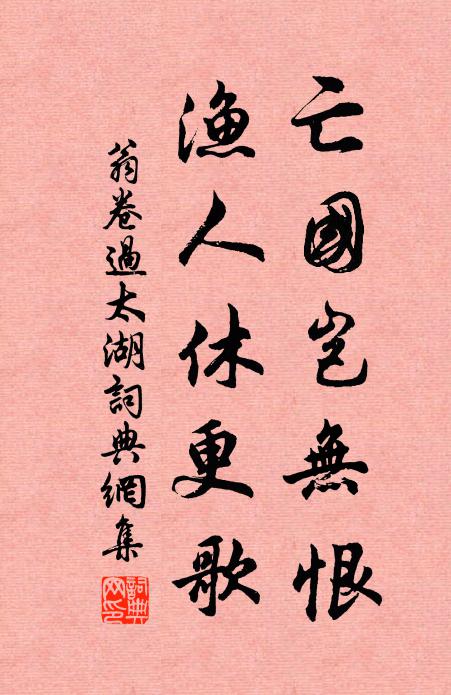 亡國豈無恨
漁人休更歌
翁卷過太湖詞典網集
詞典網印